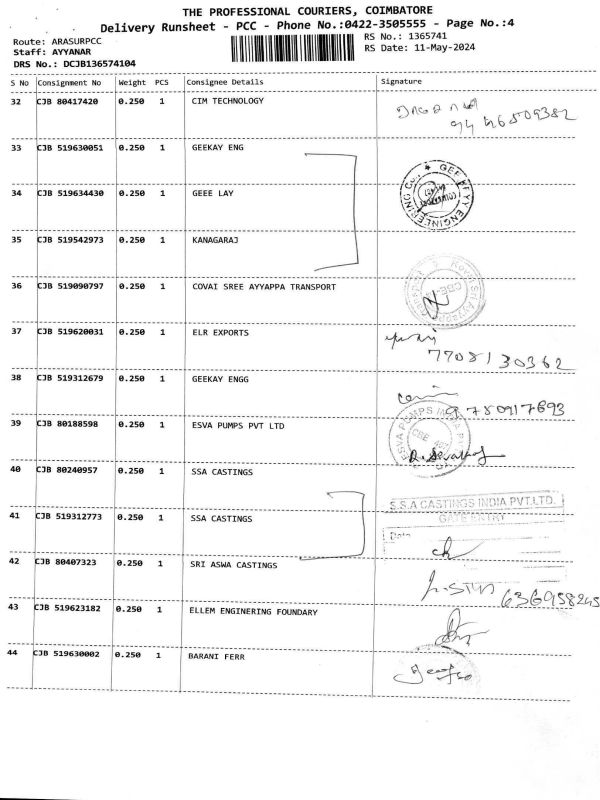 THE PROFESSIONAL COURIERS, COIMBATORE
Delivery Runsheet - PCC - Phone No.:0422-3505555 - Page No.:4
Route: ARASURPCC
Staff: AYYANAR
DRS No.: DCJB136574104
RS No.: 1365741
RS Date: 11-May-2024
S No Consignment No Weight PCS Consignee Details Signature
32 CJB 80417420 0.250 1 CIM TECHNOLOGY
33 CJB 519630051 0.250 1 GEEKAY ENG
34 CJB 519634430 0.250 1 GEEE LAY
35 CJB 519542973 0.250 1 KANAGARAJ
36 CJB 519090797 0.250 1 COVAI SREE AYYAPPA TRANSPORT
37 CJB 519620031 0.250 1 ELR EXPORTS
7708130362
38 CJB 519312679 0.250 1 GEEKAY ENGG
9780917693
39 CJB 80188598 0.250 1 ESVA PUMPS PVT LTD
ESVA PUMPS INDIA
40 CJB 80240957 0.250 1 SSA CASTINGS
S.S.A CASTINGS INDIA PVT.LTD.
GATE ENTRY
Date
41 CJB 519312773 0.250 1 SSA CASTINGS
42 CJB 80407323 0.250 1 SRI ASWA CASTINGS
43 CJB 519623182 0.250 1 ELLEM ENGINERING FOUNDARY
44 CJB 519630002 0.250 1 BARANI FERR